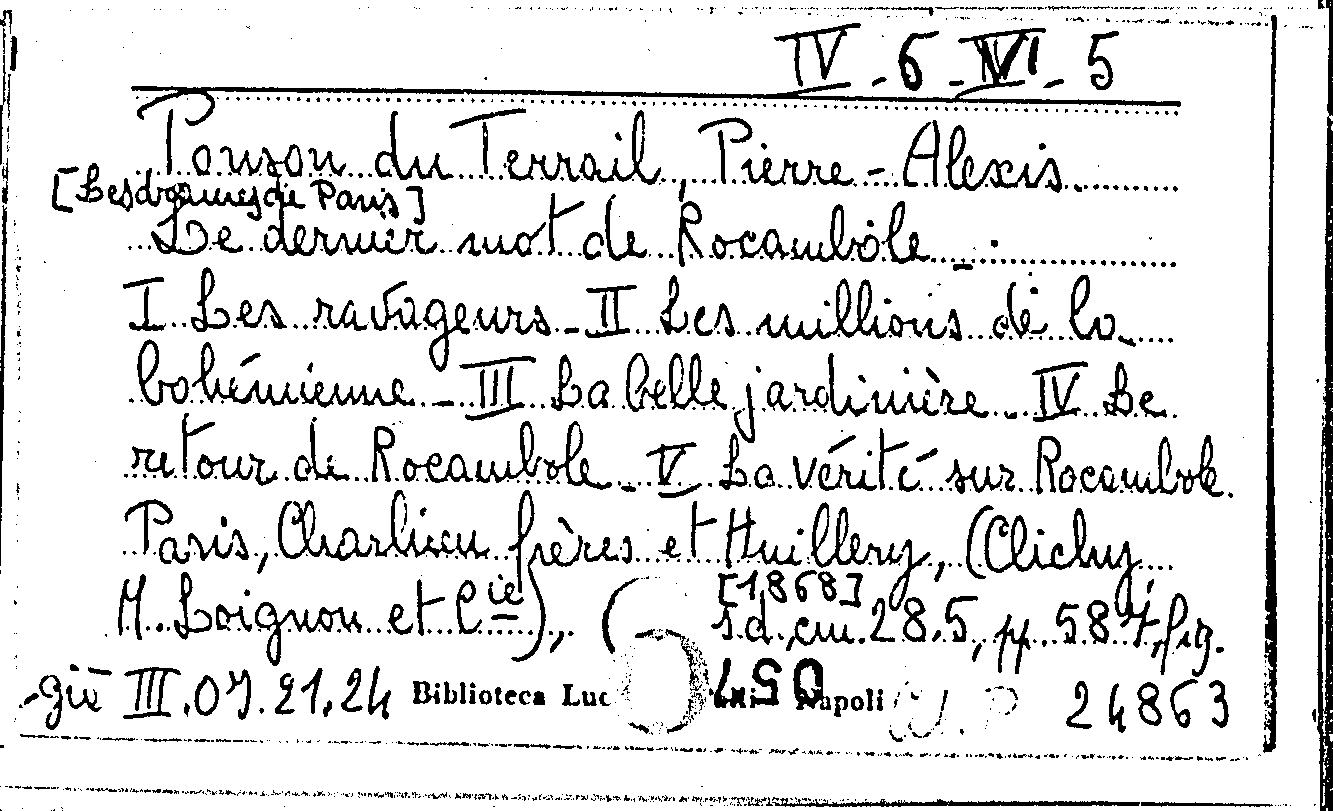 IV - 6 - VI - 5
Ponson du Terrail, Pierre-Alexis
[Les drames de Paris]
Le dernier mot de Rocambole -
I Les ravageurs - II Les millions de la
bohémienne - III La belle jardinière - IV Le
retour de Rocambole - V La vérité sur Rocambole
Paris, Charlieu frères et Huillery, (Clichy,
M. Loignon et Cie),
[1868]
s.d., cm. 28.5, pp. 587, fig.
già III.07.21.24 Biblioteca Luc Napoli 24863